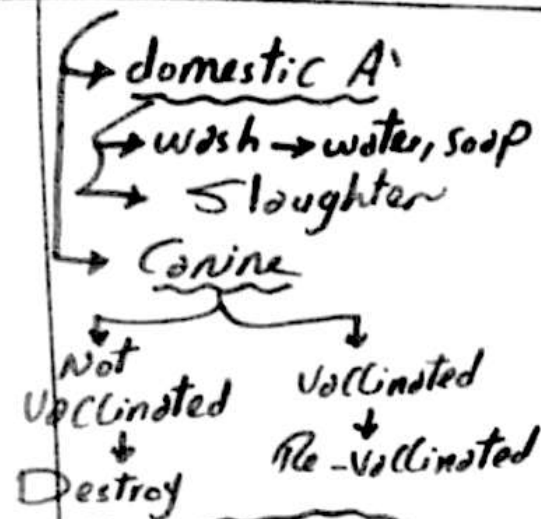 → domestic A`
→ wash → water, soap
→ Slaughter
→ Canine
Not Vaccinated
↓
Destroy
Vaccinated
↓
Re-Vaccinated